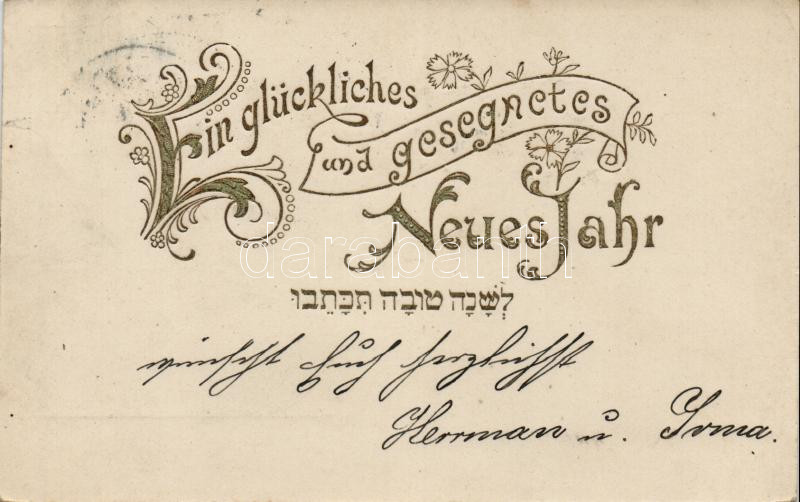 Ein glückliches
und gesegnetes
Neues Jahr
לְשָׁנָה טוֹבָה תִּכָּתֵבוּ
wünscht Euch herzlichst
Herrman u. Irma.
darabanth